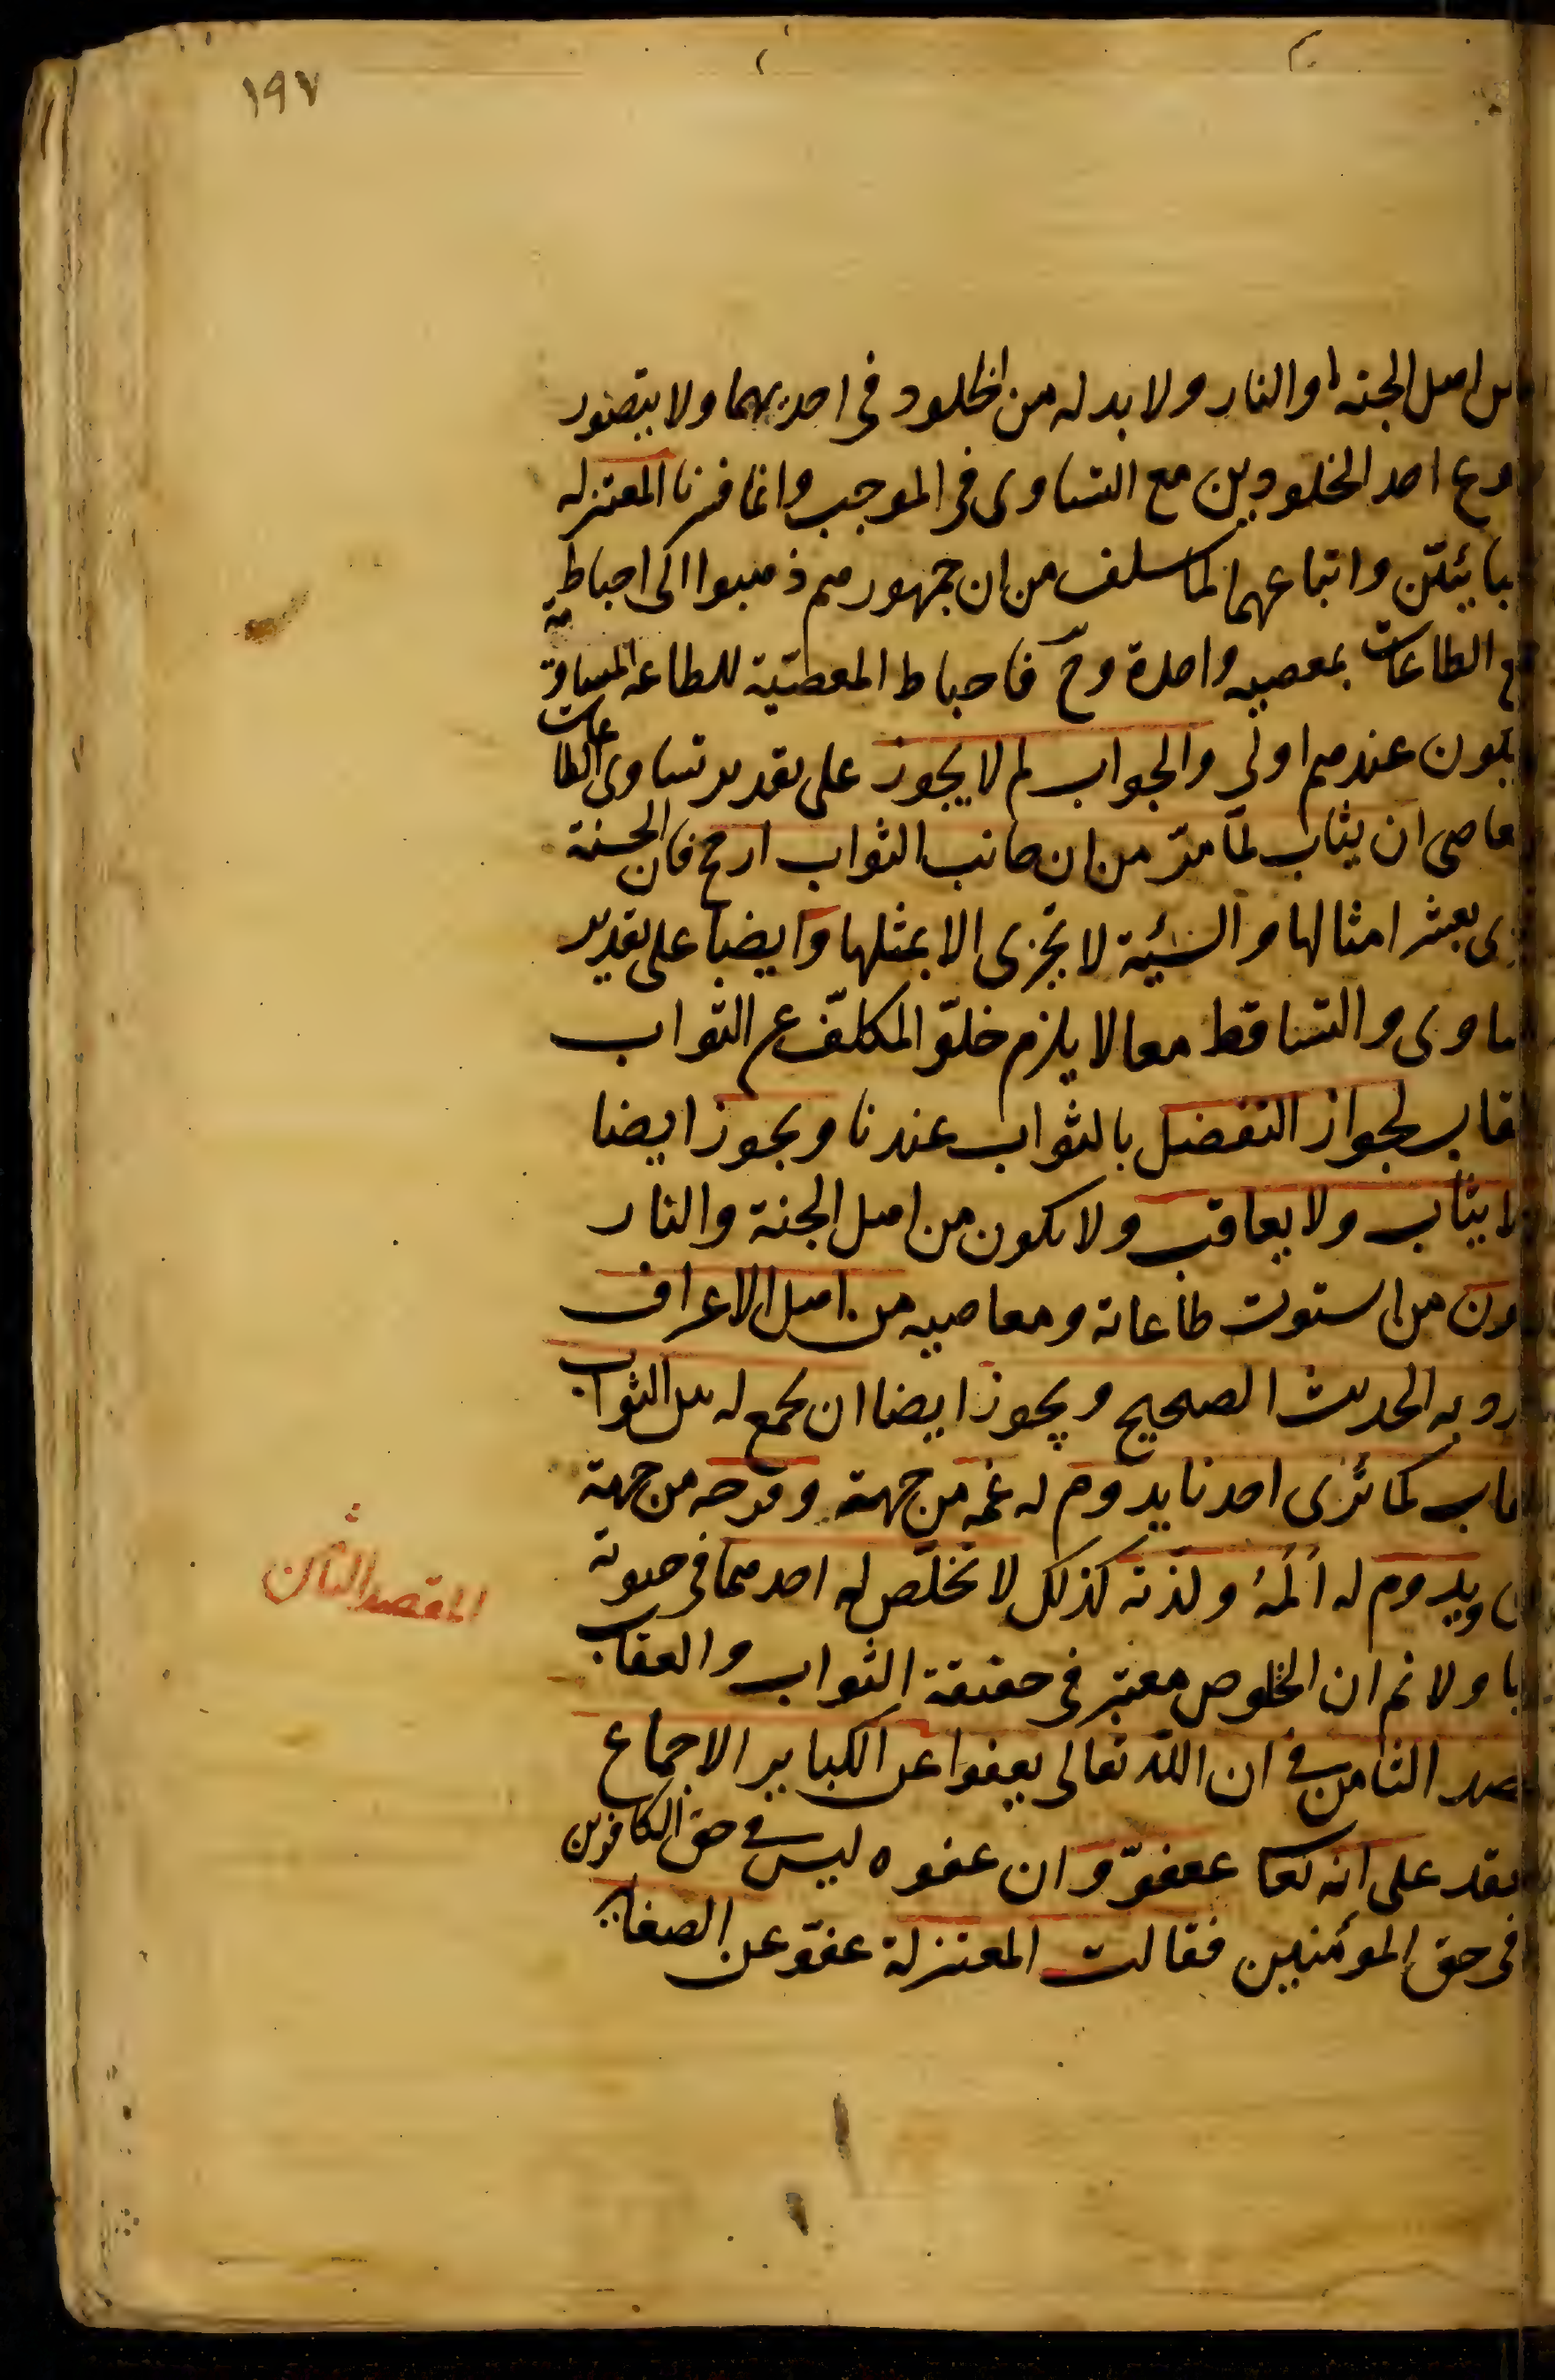 ١٩٧
اهل الجنة او النار ولا بد له من الخلود في احديهما ولا يتصور
احد الخلودين مع التساوى في الموجب وانما فسرنا المعتزله
واتباعهما لما سلف من ان جمهورهم ذهبوا الى احباط
الطاعات بمعصيه واحدة وح فاحباط المعصية للطاعه المساوية
عندهم اولى والجواب لم لا يجوز على تقدير تساوى الطاعات
ان يثاب لما مرّ من ان جانب الثواب ارجح فان الحسنة
بعشر امثالها والسيئة لا تجزى الا بمثلها وايضا على تقدير
والتساقط معا لا يلزم خلوّ المكلف عن الثواب
لجواز التفضل بالثواب عندنا ويجوز ايضا
يثاب ولا يعاقب ولا يكون من اهل الجنة والنار
من استوت طاعاته ومعاصيه من اهل الاعراف
به الحديث الصحيح ويجوز ايضا ان يجمع له بين الثواب
كما نرى احدنا يدوم له غمه من جهة وفرحه من جهة
ويدوم له ألمه ولذته كذلك لا تخلص له احدهما في حيوته
ولا نم ان الخلوص معتبر في حقيقة الثواب والعقاب
الثامن في ان الله تعالى يعفوا عن الكباير الاجماع
على انه تعا عفوّ وان عفوه ليس في حق الكافرين
في حق المؤمنين فقالت المعتزلة عفوّ عن الصغاير
المقصد الثامن